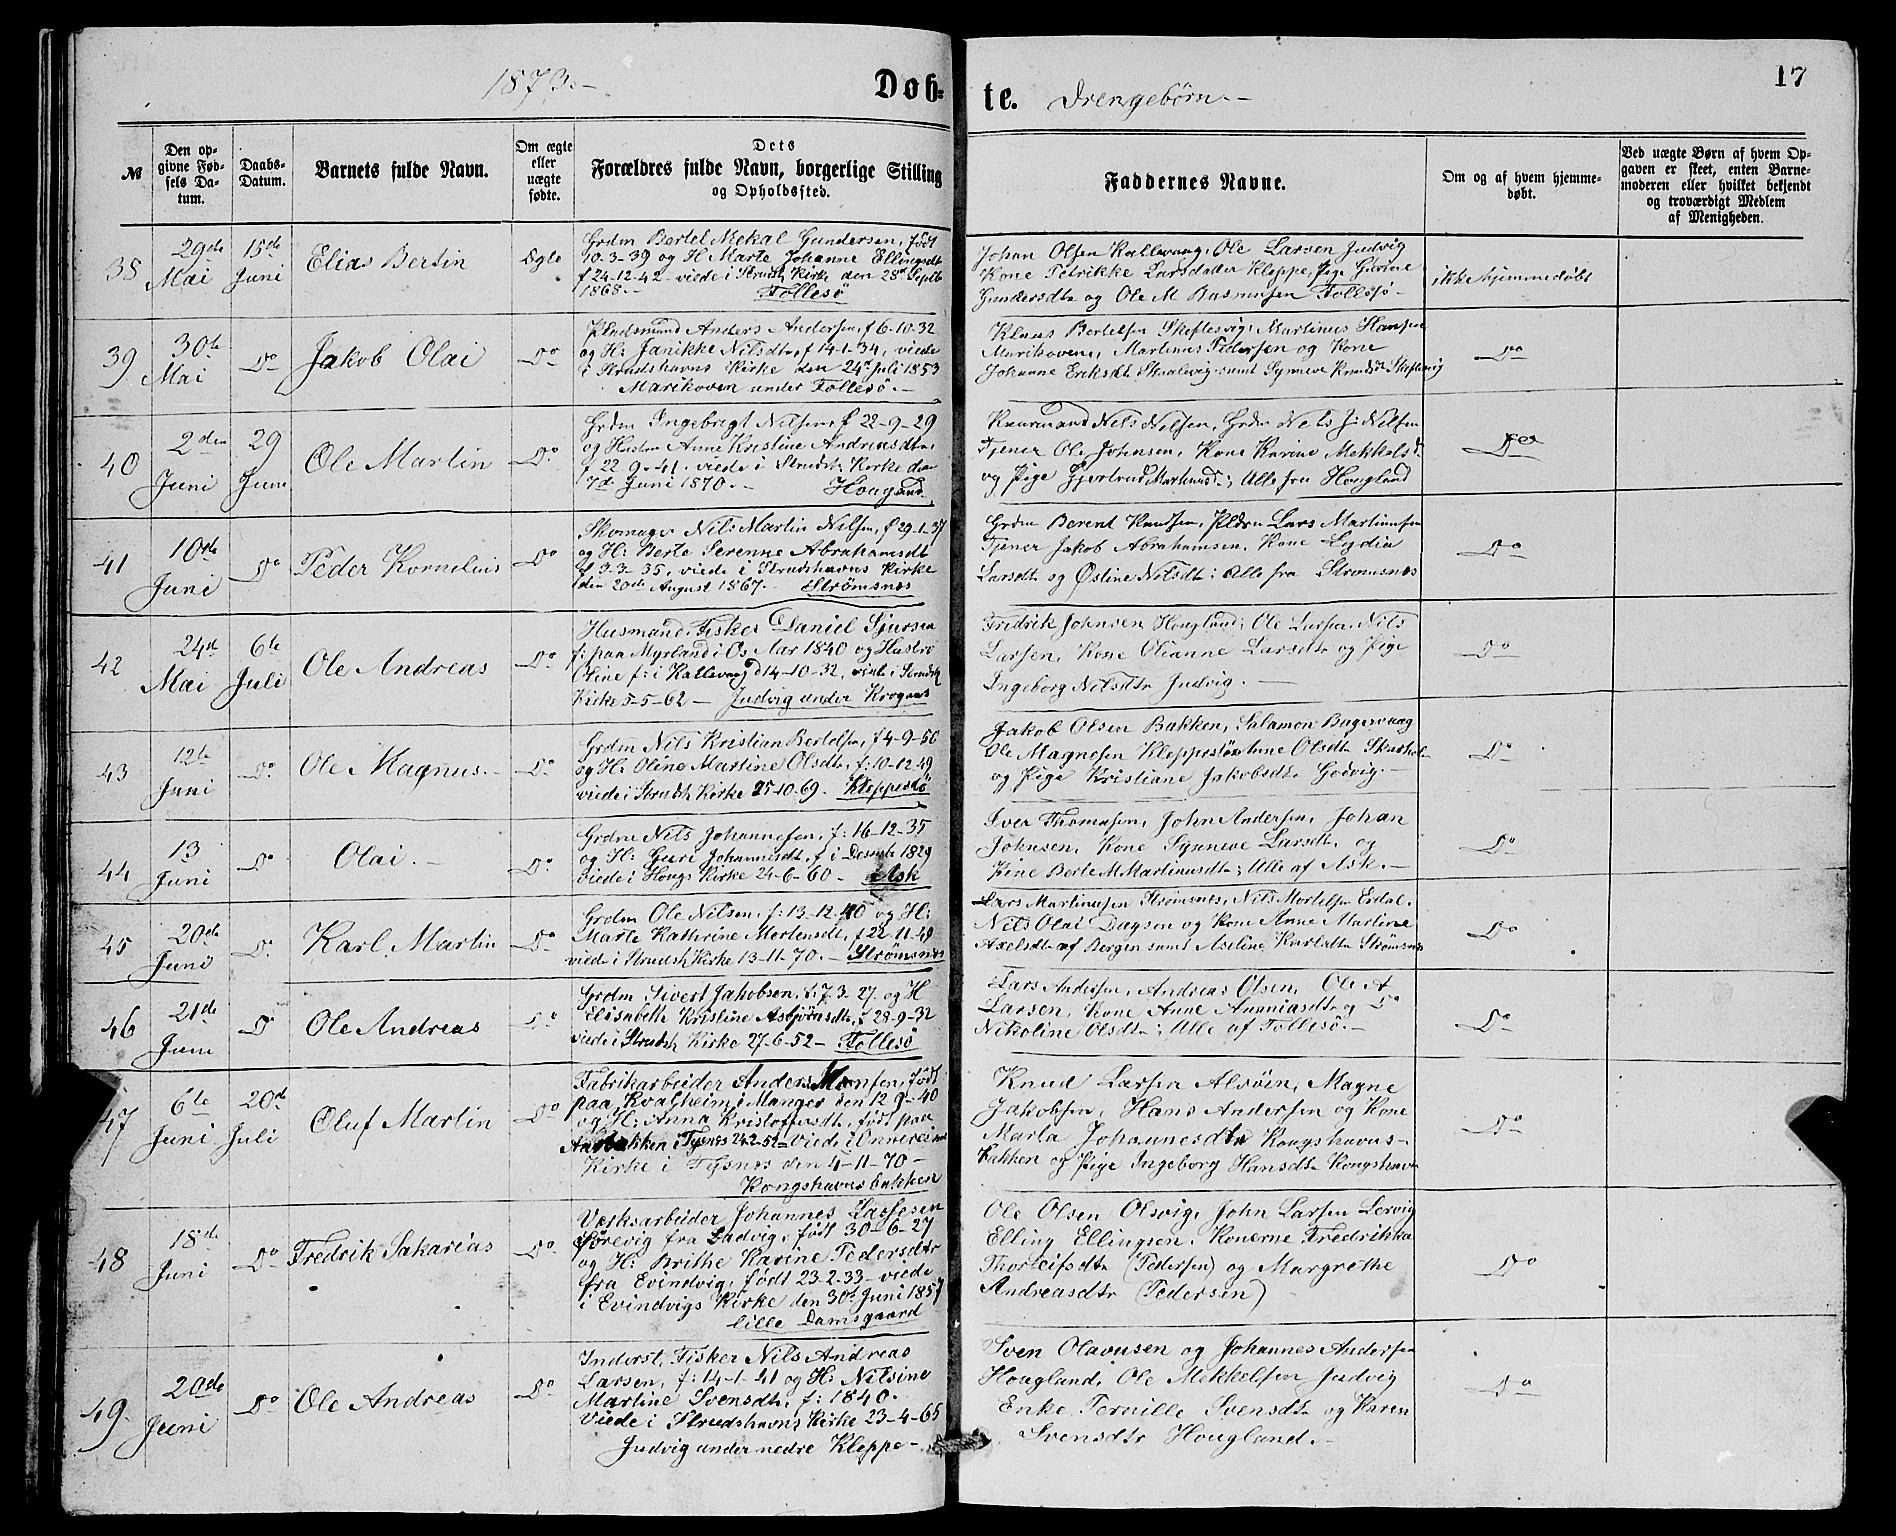 1873.-
Døb=
te. Drengebørn.-
17
№
Den opgivne Fødsels Datum.
Daabs-Datum.
Barnets fulde Navn.
Om ægte eller uægte fødte.
Dets
Forældres fulde Navn, borgerlige Stilling
og Opholdssted.
Faddernes Navne.
Om og af hvem hjemmedøbt.
Ved uægte Børn af hvem Opgaven er skeet, enten Barnemoderen eller hvilket bekjendt og troværdigt Medlem af Menigheden.
38 29de Mai 15de Juni Elias Bertin Egte
Grdm Bertel Mekal Gundersen, født
10-3-39 og H. Marte Johanne Ellingsdt
f 24-12-42 - viede i Strudsh Kirke den 28de Septb
1868.- Follesø
Johan Olsen Kallevaag, Ole Larsen Judvig
Kone Petrikke Larsdatter Kleppe, Pige Gurine
Gundersdt og Ole M Rasmussen Follesø -
ikke hjemmedøbt
39 30te Mai Do Jakob Olai Do
Pladsmand Anders Andersen, f 6-10-32
og H: Janikke Nilsdt, f 14-1-34, viede
i Strudshavns Kirke den 24de Juli 1853
Marikoven under Follesø.-
Klaus Bertelsen Skeflesvig, Martinus Hansen
Marikovene, Martinus Pedersen og Kone
Johanne Eriksdt Skaalevig samt Synneve Knudsdt Skeflesvig
Do
40 2den Juni 29 Juni Ole Martin Do
Grdm Ingebrigt Nilsen, f 22-9-29
og Hustru Anne Kristine Andreasdtr
f 22-9-41, viede i Strudsh Kirke den
7de Juni 1870.- Hougland
Kaarmand Nils Nilsen, Grdm Nels J. Nilsen
Tjener Ole Johnsen, Kone Karine Mekkelsd
og Pige Gjertrud Markusd; Alle fra Hougland
Do
41 10de Juni Do Peder Kornelius Do
Skomager Nils Martin Nilsen, f 29-1-37
og H: Berte Serenne Abrahamsdt
f 3-3-35, viede i Strudshavns Kirke
den 20de August 1867. Strømsnes
Grdm Berent Knudsen, Pldm Lars Martinusen
Tjener Jakob Abrahamsen, Kone Lydia
Larsdt og Østine Nilsdt; Alle fra Strømsnes
Do
42 24de Mai 6te Juli Ole Andreas Do
Husmand, Fisker Daniel Sjursen
f: paa Myrland i Os Aar 1840 og Hustru
Oline f: i Kallevaag d 14-10-32, viede i Strudsh
Kirke 5-5-62 - Judvig under Krogaas
Fredrik Johnsen Hougland, Ole Larsen, Nils
Larsen, Kone Olianne Larsdt og Pige
Ingeborg Nilsdtr Judvig.-
Do
43 12te Juni Do Ole Magnus.- Do
Grdm Nils Kristian Bertelsen, f 4-9-50
og H: Oline Martine Olsdt, f: 10-12-49
viede i Strudsh Kirke 25-10-69. Kleppesø
Jakob Olsen Bakken, Salamon Bagervaag
Ole Magnesen Kleppesø, Anne Olsdt Skarhol
og Pige Kristiane Jakobsdt Godvig.-
Do
44 13 Juni Do Olai.- Do
Grdm Nils Johannesen, f: 16-12-35
og H: Guri Johannesdt, f i Desembr 1829
viede i Hougs Kirke 24-6-60 - Ask
Iver Thomasen, John Andersen, Johan
Johnsen, Kone Synneve Larsdt og
Pine Berte M Martinusdt; Alle af Ask.-
Do
45 20de Juni Do Karl Martin Do
Grdm Ole Nilsen, f: 13-12-40 og H:
Marte Kathrine Mortensdt, f 22-11-49
viede i Strudsh Kirke 13-11-70. - Strømsnes
Lars Martinusen Strømsnes, Nils Mortelsen Eidal.
Nils Olai Dagsen og Kone Anne Martine
Axelsdt af Bergen samt Aseline Karlsdt Strømsnes
Do
46 21de Juni Do Ole Andreas Do
Grdm Sivert Jakobsen, f: 7-3-27 og H
Elisabeth Kristine Asbjørnsdt, f 28-9-32
viede i Strudsh Kirke 27-6-52 - Follesø
Lars Andersen, Andreas Olsen, Ole A
Larsen, Kone Anne Ananiasdt og Do
Nikoline Olsdt; Alle af Follesø.-
Do
47 6te Juni 20de Juli Oluf Martin Do
Fabrikarbeider Anders Monsen, født
paa Kvalheim i Manger den 12-9-40
og H: Anna Kristoffersdt, født paa
i Tysnes 24-2-52 - viede i Onnereims
Kirke i Tysnes den 4-11-70 -
Kongshavnsbakken
Knud Larsen Alsøin, Magne
Jakobsen, Hans Andersen og Kone
Marta Johannesdtr Kongshavns-
bakken og Pige Ingeborg Hansdt Kongshavn
Do
48 18de Juni Do Fredrik Sakarias Do
Værksarbeider Johannes Lassesen
Sørevig fra Ladvig, født 30-6-27
og H: Brithe Karine Pedersdtr
fra Evindvig, født 23-2-33 - viede
i Evindvigs Kirke den 30te Juni 1857
lille Damsgaard
Ole Olsen Olsvig, John Larsen Lervig
Elling Ellingsen, Konerne Fredrikka
Thorleifsdtr (Pedersen) og Margrethe
Andreasdtr (Pedersen)
Do
49. 20de Juni Do Ole Andreas Do
Inderst, Fisker Nils Andreas
Larsen, f: 14-1-41 og H: Nilsine
Martine Svensdt, f: 1840.
viede i Strudshavns Kirke 23-4-65
Judvig under nedre Kleppe -
Sven Olavusen og Johannes Andersen
Hougland, Ole Mekkelsen Judvig
Enke Pernille Svensdt og Karen
Svensdtr Hougland.-
Do